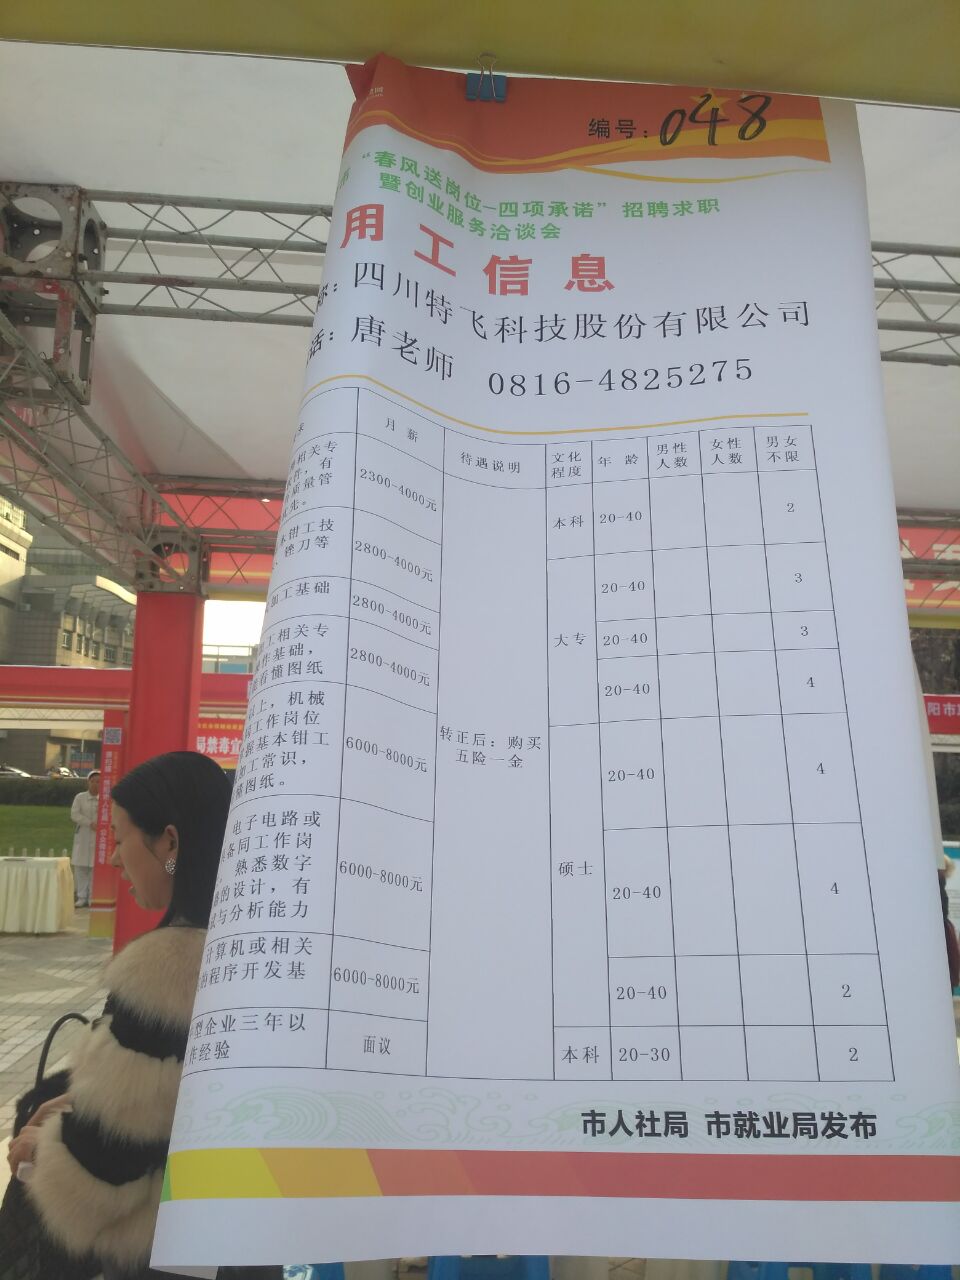 编号：048
“春风送岗位-四项承诺”招聘求职
暨创业服务洽谈会
用工信息
称：四川特飞科技股份有限公司
话：唐老师 0816-4825275
月薪 待遇说明 文化程度 年龄 男性人数 女性人数 男女不限
相关专
，有
质量管
先。
2300-4000元 本科 20-40 2
钳工技
锉刀等
2800-4000元 大专 20-40 3
加工基础
2800-4000元 20-40 3
工相关专
作基础，
看懂图纸
2800-4000元 20-40 4
上，机械
工作岗位
握基本钳工
加工常识，
懂图纸。
6000-8000元 硕士 20-40 4
转正后：购买
五险一金
电子电路或
备同工作岗
熟悉数字
的设计，有
与分析能力
6000-8000元 20-40 4
计算机或相关
的程序开发基
6000-8000元 20-40 2
型企业三年以
作经验
面议 本科 20-30 2
市人社局 市就业局发布
局禁毒宣
阳市